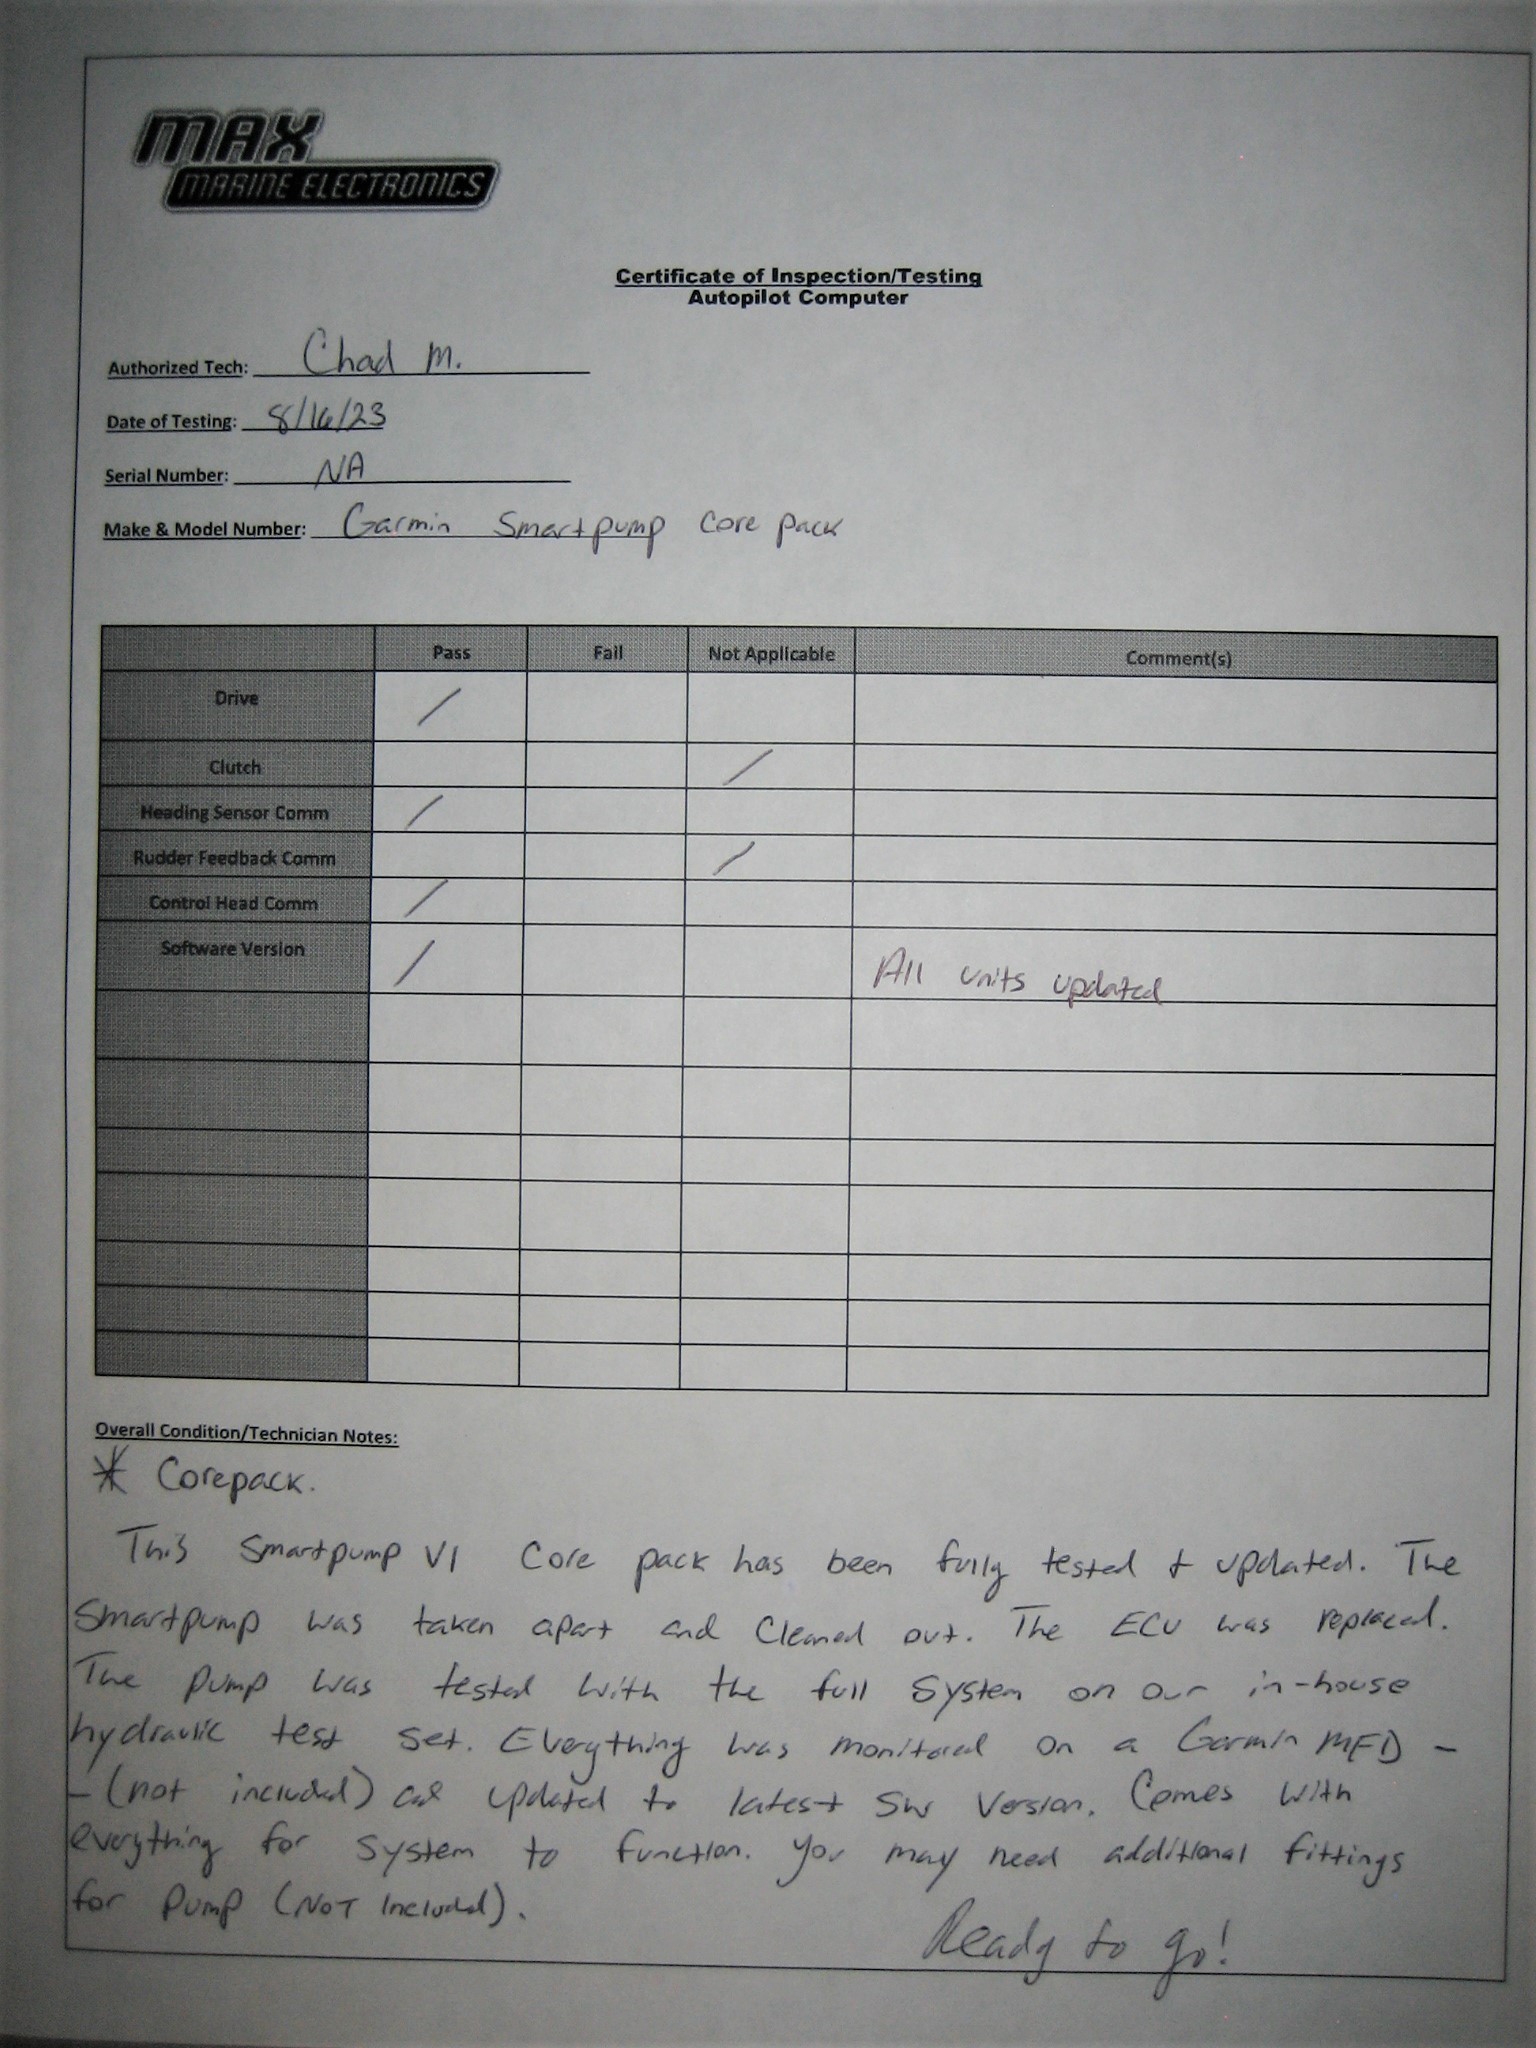 MAX
MARINE ELECTRONICS
Certificate of Inspection/Testing
Autopilot Computer
Authorized Tech: Chad M.
Date of Testing: 8/16/23
Serial Number: NA
Make & Model Number: Garmin Smartpump Core pack
Pass Fail Not Applicable Comment(s)
Drive /
Clutch /
Heading Sensor Comm /
Rudder Feedback Comm /
Control Head Comm /
Software Version / All units updated
Overall Condition/Technician Notes:
* Corepack.
This Smartpump V1 Core pack has been fully tested + updated. The
Smartpump was taken apart and Cleaned out. The ECU was replaced.
The pump was tested with the full System on our in-house
hydraulic test set. Everything was monitored on a Garmin MFD -
- (not included) and updated to latest SW Version. Comes with
everything for System to function. You may need additional fittings
for Pump (NOT Included).
Ready to go!